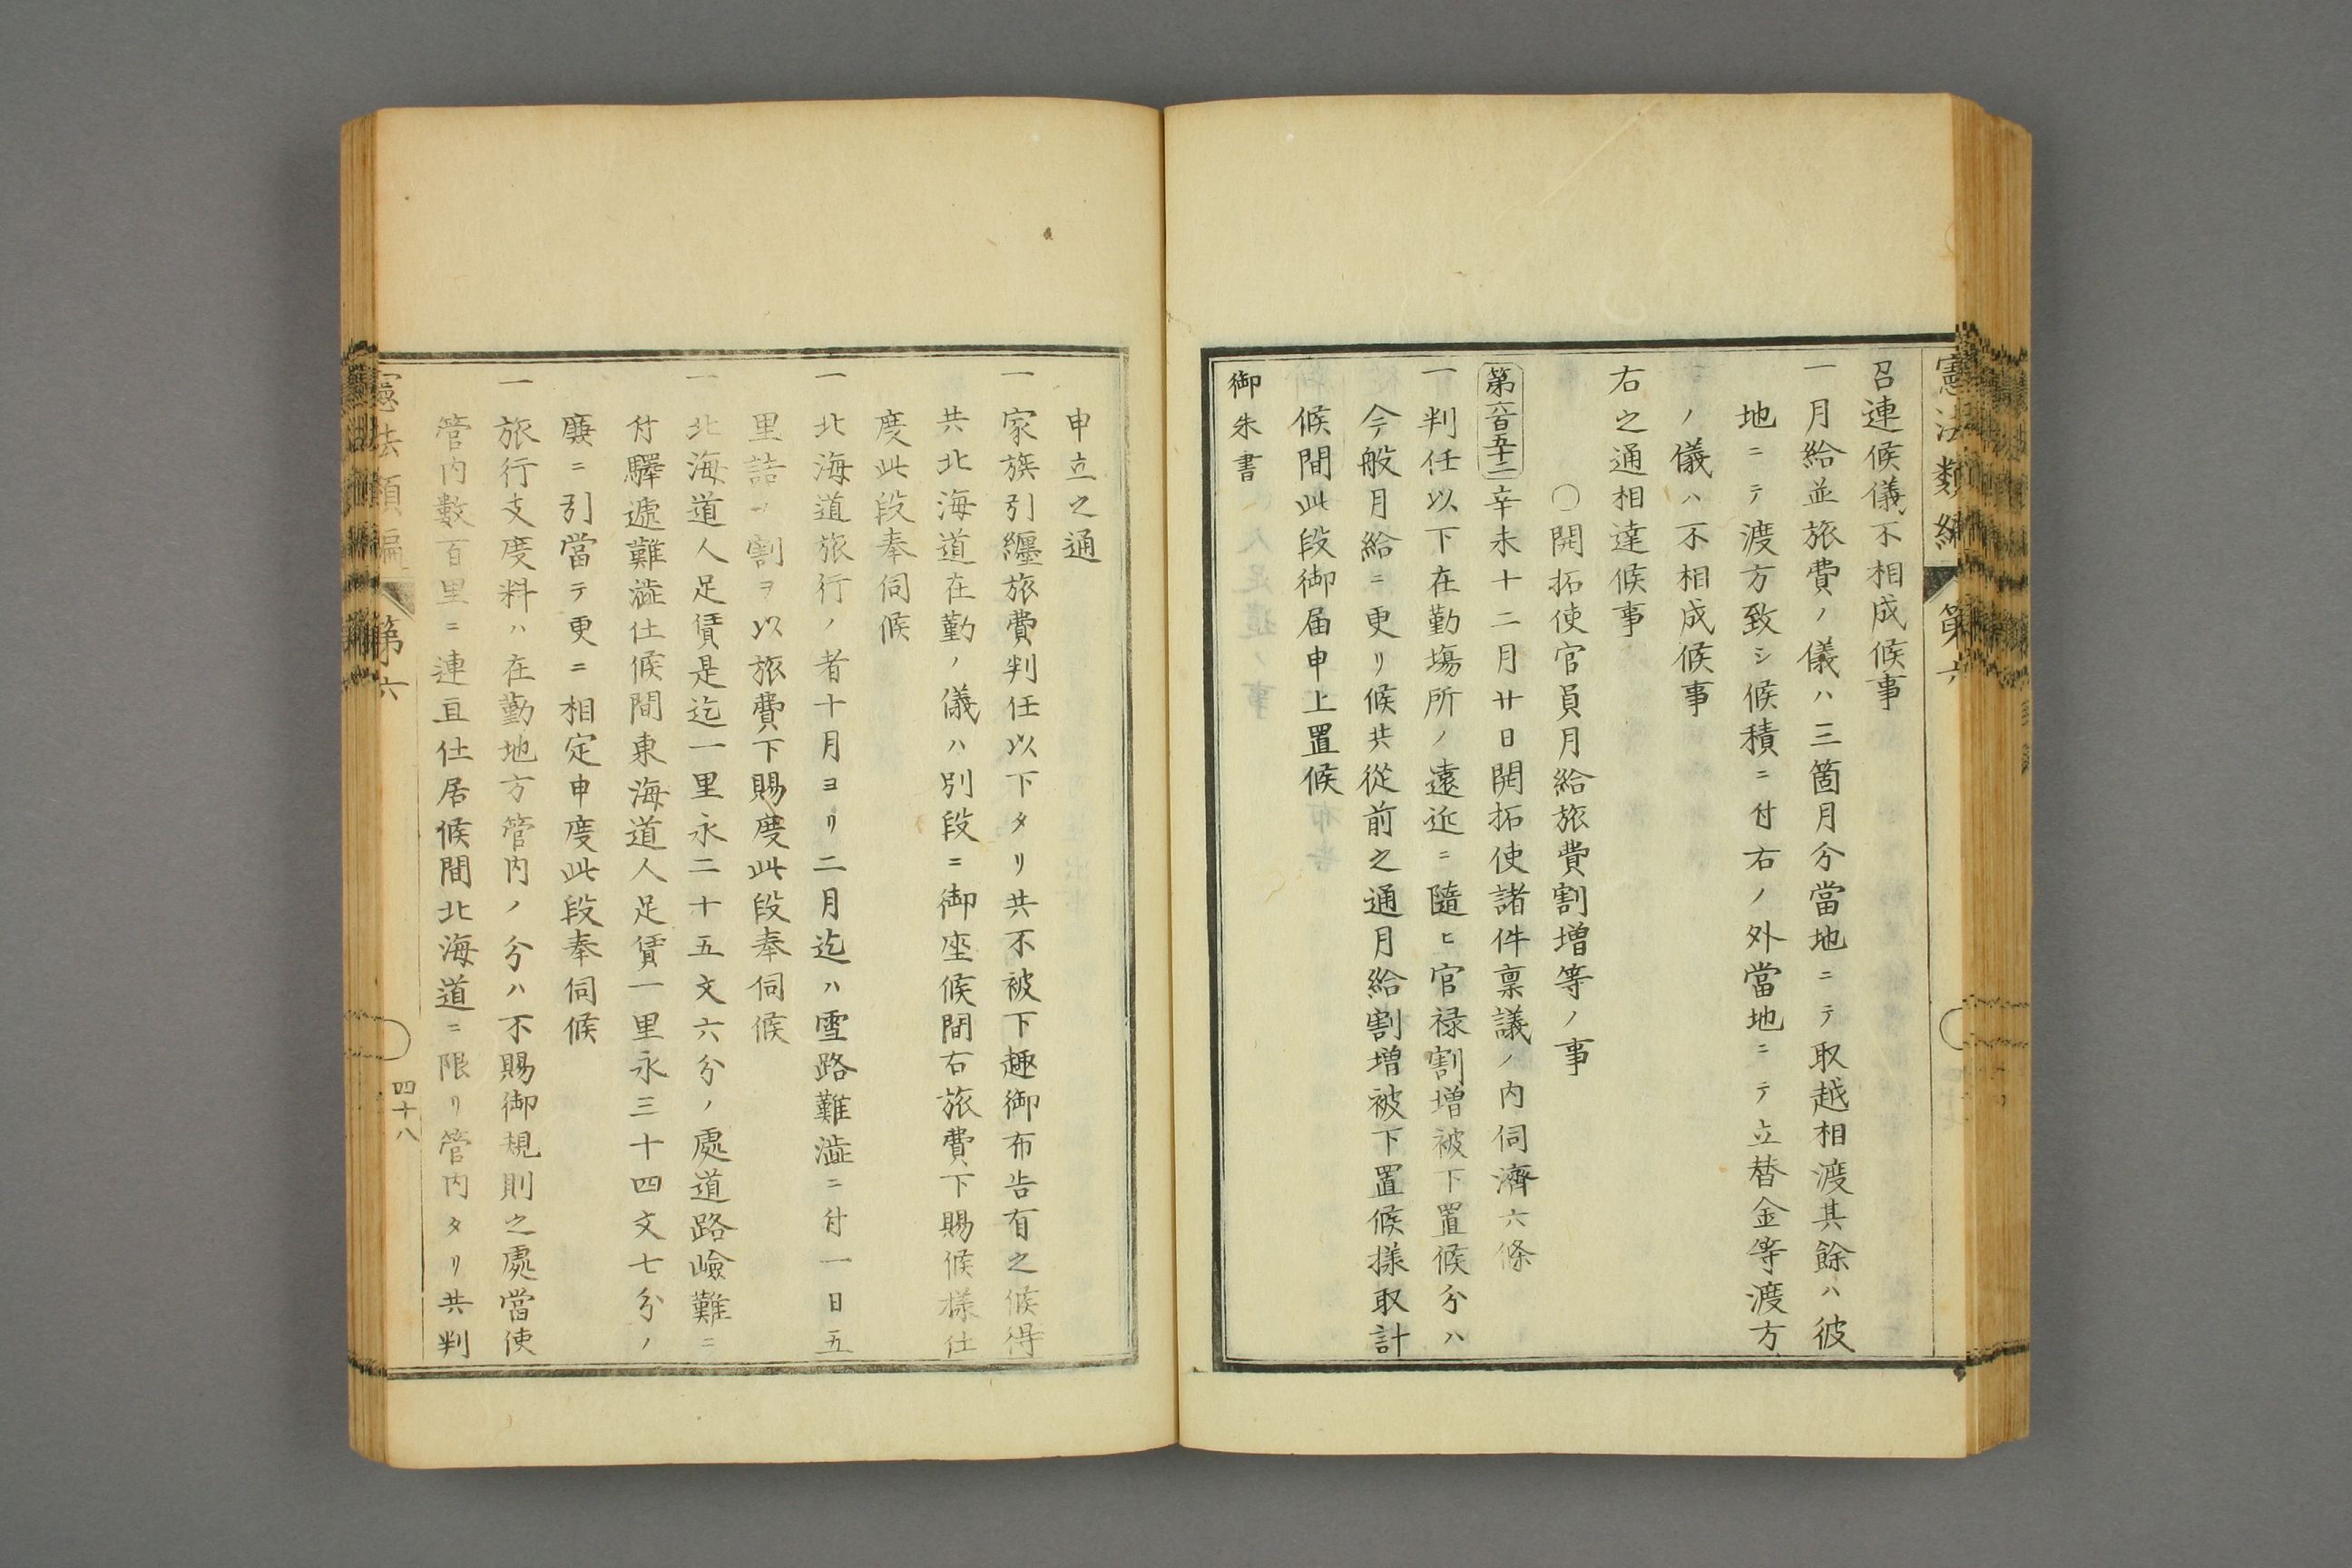 憲法類編 第六
召連候儀不相成候事
一月給並旅費ノ儀ハ三箇月分當地ニテ取越相渡其餘ハ彼
地ニテ渡方致シ候積ニ付右ノ外當地ニテ立替金等渡方
ノ儀ハ不相成候事
右之通相達候事
〇開拓使官員月給旅費割增等ノ事
第六百五十二 辛未十二月廿日開拓使諸件稟議ノ内伺濟六條
一判任以下在勤塲所ノ遠近ニ隨ヒ官禄割增被下置候分ハ
今般月給ニ更リ候共從前之通月給割增被下置候様取計
候間此段御届申上置候
御朱書
申立之通
一家族引纒旅費判任以下タリ共不被下趣御布告有之候得
共北海道在勤ノ儀ハ別段ニ御座候間右旅費下賜候様仕
度此段奉伺候
一北海道旅行ノ者十月ヨリ二月迄ハ雪路難澁ニ付一日五
里詰ノ割ヲ以旅費下賜度此段奉伺候
一北海道人足賃是迄一里永二十五文六分ノ處道路嶮難ニ
付驛遞難澁仕候間東海道人足賃一里永三十四文七分ノ
廉ニ引當テ更ニ相定申度此段奉伺候
一旅行支度料ハ在勤地方管内ノ分ハ不賜御規則之處當使
管内數百里ニ連亘仕居候間北海道ニ限リ管内タリ共判
憲法類編 第六
四十八